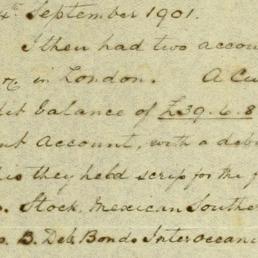 4th September 1901.
I then had two accou
in London. A Cu
dit balance of £39.6.8
nt account, with a deb
his they held scrip for the f
Stock, Mexican Southe
B. Deb. Bonds Interoceani